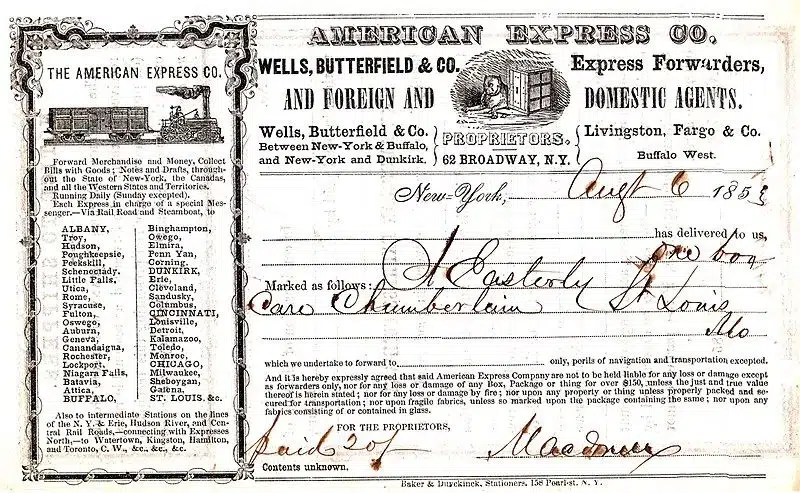 THE AMERICAN EXPRESS CO.
Forward Merchandise and Money, Collect
Bills with Goods; Notes and Drafts, through-
out the State of New-York, the Canadas,
and all the Western States and Territories.
Running Daily (Sunday excepted).
Each Express in charge of a special Mes-
senger.—Via Rail Road and Steamboat, to
ALBANY,
Troy,
Hudson,
Poughkeepsie,
Peekskill,
Schenectady.
Little Falls,
Utica,
Rome,
Syracuse,
Fulton,
Oswego,
Auburn,
Geneva,
Canandaigna,
Rochester,
Lockport,
Niagara Falls,
Batavia,
Attica,
BUFFALO,
Binghampton,
Owego,
Elmira,
Penn Yan,
Corning.
DUNKIRK,
Erie,
Cleveland,
Sandusky,
Columbus,
CINCINNATI,
Louisville,
Detroit,
Kalamazoo,
Toledo,
Monroe,
CHICAGO,
Milwaukee,
Sheboygan,
Galena,
ST. LOUIS. &c.
Also to intermediate Stations on the lines
of the N. Y. & Erie, Hudson River, and Cen-
tral Rail Roads,—connecting with Expresses
North,—to Watertown, Kingston, Hamilton,
and Toronto, C. W., &c., &c., &c.
AMERICAN EXPRESS CO.
WELLS, BUTTERFIELD & CO. Express Forwarders,
AND FOREIGN AND DOMESTIC AGENTS.
Wells, Butterfield & Co. PROPRIETORS. Livingston, Fargo & Co.
Between New-York & Buffalo,
and New-York and Dunkirk. 62 BROADWAY, N.Y. Buffalo West.
New-York, Augt 6 1853
has delivered to us,
one box
Marked as follows: A Easterly
Care Chamberlain St Louis
Mo
which we undertake to forward to only, perils of navigation and transportation excepted.
And it is hereby expressly agreed that said American Express Company are not to be held liable for any loss or damage except
as forwarders only, nor for any loss or damage of any Box, Package or thing for over $150, unless the just and true value
thereof is herein stated; nor for any loss or damage by fire; nor upon any property or thing unless properly packed and se-
cured for transportation; nor upon fragile fabrics, unless so marked upon the package containing the same; nor upon any
fabrics consisting of or contained in glass.
FOR THE PROPRIETORS,
paid 20/
Contents unknown.
Baker & Duyckinck, Stationers, 158 Pearl-st. N. Y.